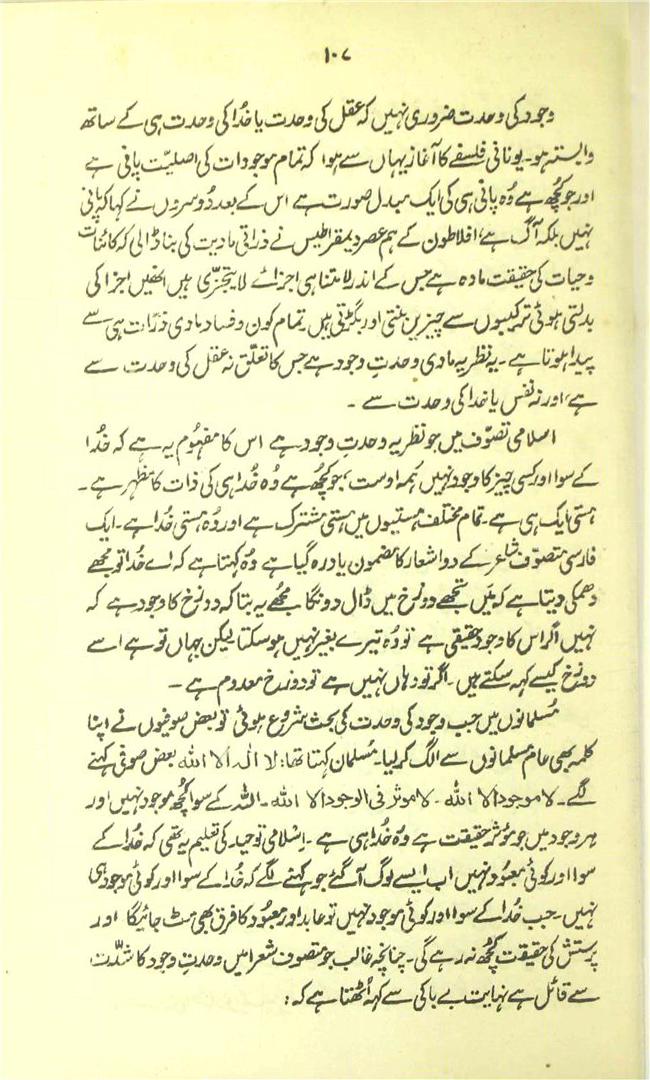 ۱۰۷
وجود کی وحدت ضروری نہیں کہ عقل کی وحدت یا خُدا کی وحدت ہی کے ساتھ
وابستہ ہو۔ یونانی فلسفے کا آغاز یہاں سے ہوا کہ تمام موجودات کی اصلیّت پانی ہے
اور جو کچُھ ہے وُہ پانی ہی کی ایک مبدل صورت ہے اس کے بعد دُوسروں نے کہا کہ پانی
نہیں بلکہ آگ ہے، افلاطون کے ہم عصر دیمقراطیس نے ذراتی مادیت کی بنا ڈالی کہ کائنات
وحیات کی حقیقت مادہ ہے جس کے اندر لامتناہی اجزائے لایتجزّی ہیں انھیں اجزا کی
بدلتی ہوئی ترکیبوں سے چیزیں بنتی اور بگڑتی ہیں۔ تمام کون و فساد مادی ذرّات ہی سے
پیدا ہوتا ہے۔ یہ نظریہ مادی وحدتِ وجود ہے جس کا تعلّق نہ عقل کی وحدت سے
ہے، اور نہ نفس یا خدا کی وحدت سے ۔
اسلامی تصوّف میں جو نظریہ وحدتِ وجود ہے اس کا مفہُوم یہ ہے کہ خُدا
کے سوا اور کسی چیز کا وجود نہیں ہمہ اوست، جو کچُھ ہے وُہ خُدا ہی کی ذات کا مظہر ہے۔
ہستی ایک ہی ہے۔ تمام مختلف ہستیوں میں ہستی مشترک ہے اور وُہ ہستی خُدا ہے۔ ایک
فارسی متصوّف شاعر کے دو اشعار کا مضمون یاد رہ گیا ہے وُہ کہتا ہے کہ اے خُدا تو مجھے
دھمکی دیتا ہے کہ میَں تجھے دوزخ میں ڈال دونگا مجُھے یہ بتا کہ دوزخ کا وجود ہے کہ
نہیں اگر اس کا وجود حقیقی ہے تو وُہ تیرے بغیر نہیں ہو سکتا لیکن جہاں تو ہے اسے
دوزخ کیسے کہہ سکتے ہیں۔ اگر تو وہاں نہیں ہے تو دوزخ معدوم ہے ۔
مُسلمانوں میں جب وجود کی وحدت کی بحث شروع ہوئی تو بعض صوفیوں نے اپنا
کلمہ بھی عام مسلمانوں سے الگ کر لیا۔ مُسلمان کہتا تھا: لا الٰہ الا اللہ بعض صوفی کہنے
لگے۔ لا موجود الا اللہ ۔ لا موثر فی الوجود الا اللہ ۔ اللہ کے سوا کچُھ موجود نہیں اور
ہر وجود میں جو مؤثر حقیقت ہے وُہ خُدا ہی ہے۔ اِسلامی توحید کی تعلیم یہ تھی کہ خُدا کے
سوا اور کوئی معبُود نہیں اب ایسے لوگ آ گئے جو کہنے لگے کہ خُدا کے سوا اور کوئی موجود ہی
نہیں۔ جب خُدا کے سوا اور کوئی موجود نہیں تو عابد اور معبُود کا فرق بھی مٹ جائیگا اور
پرستش کی حقیقت کچُھ نہ رہے گی۔ چنانچہ غالب جو متصوف شعرا میں وحدتِ وجود کا شدّت
سے قائل ہے نہایت بے باکی سے کہہ اُٹھتا ہے کہ: